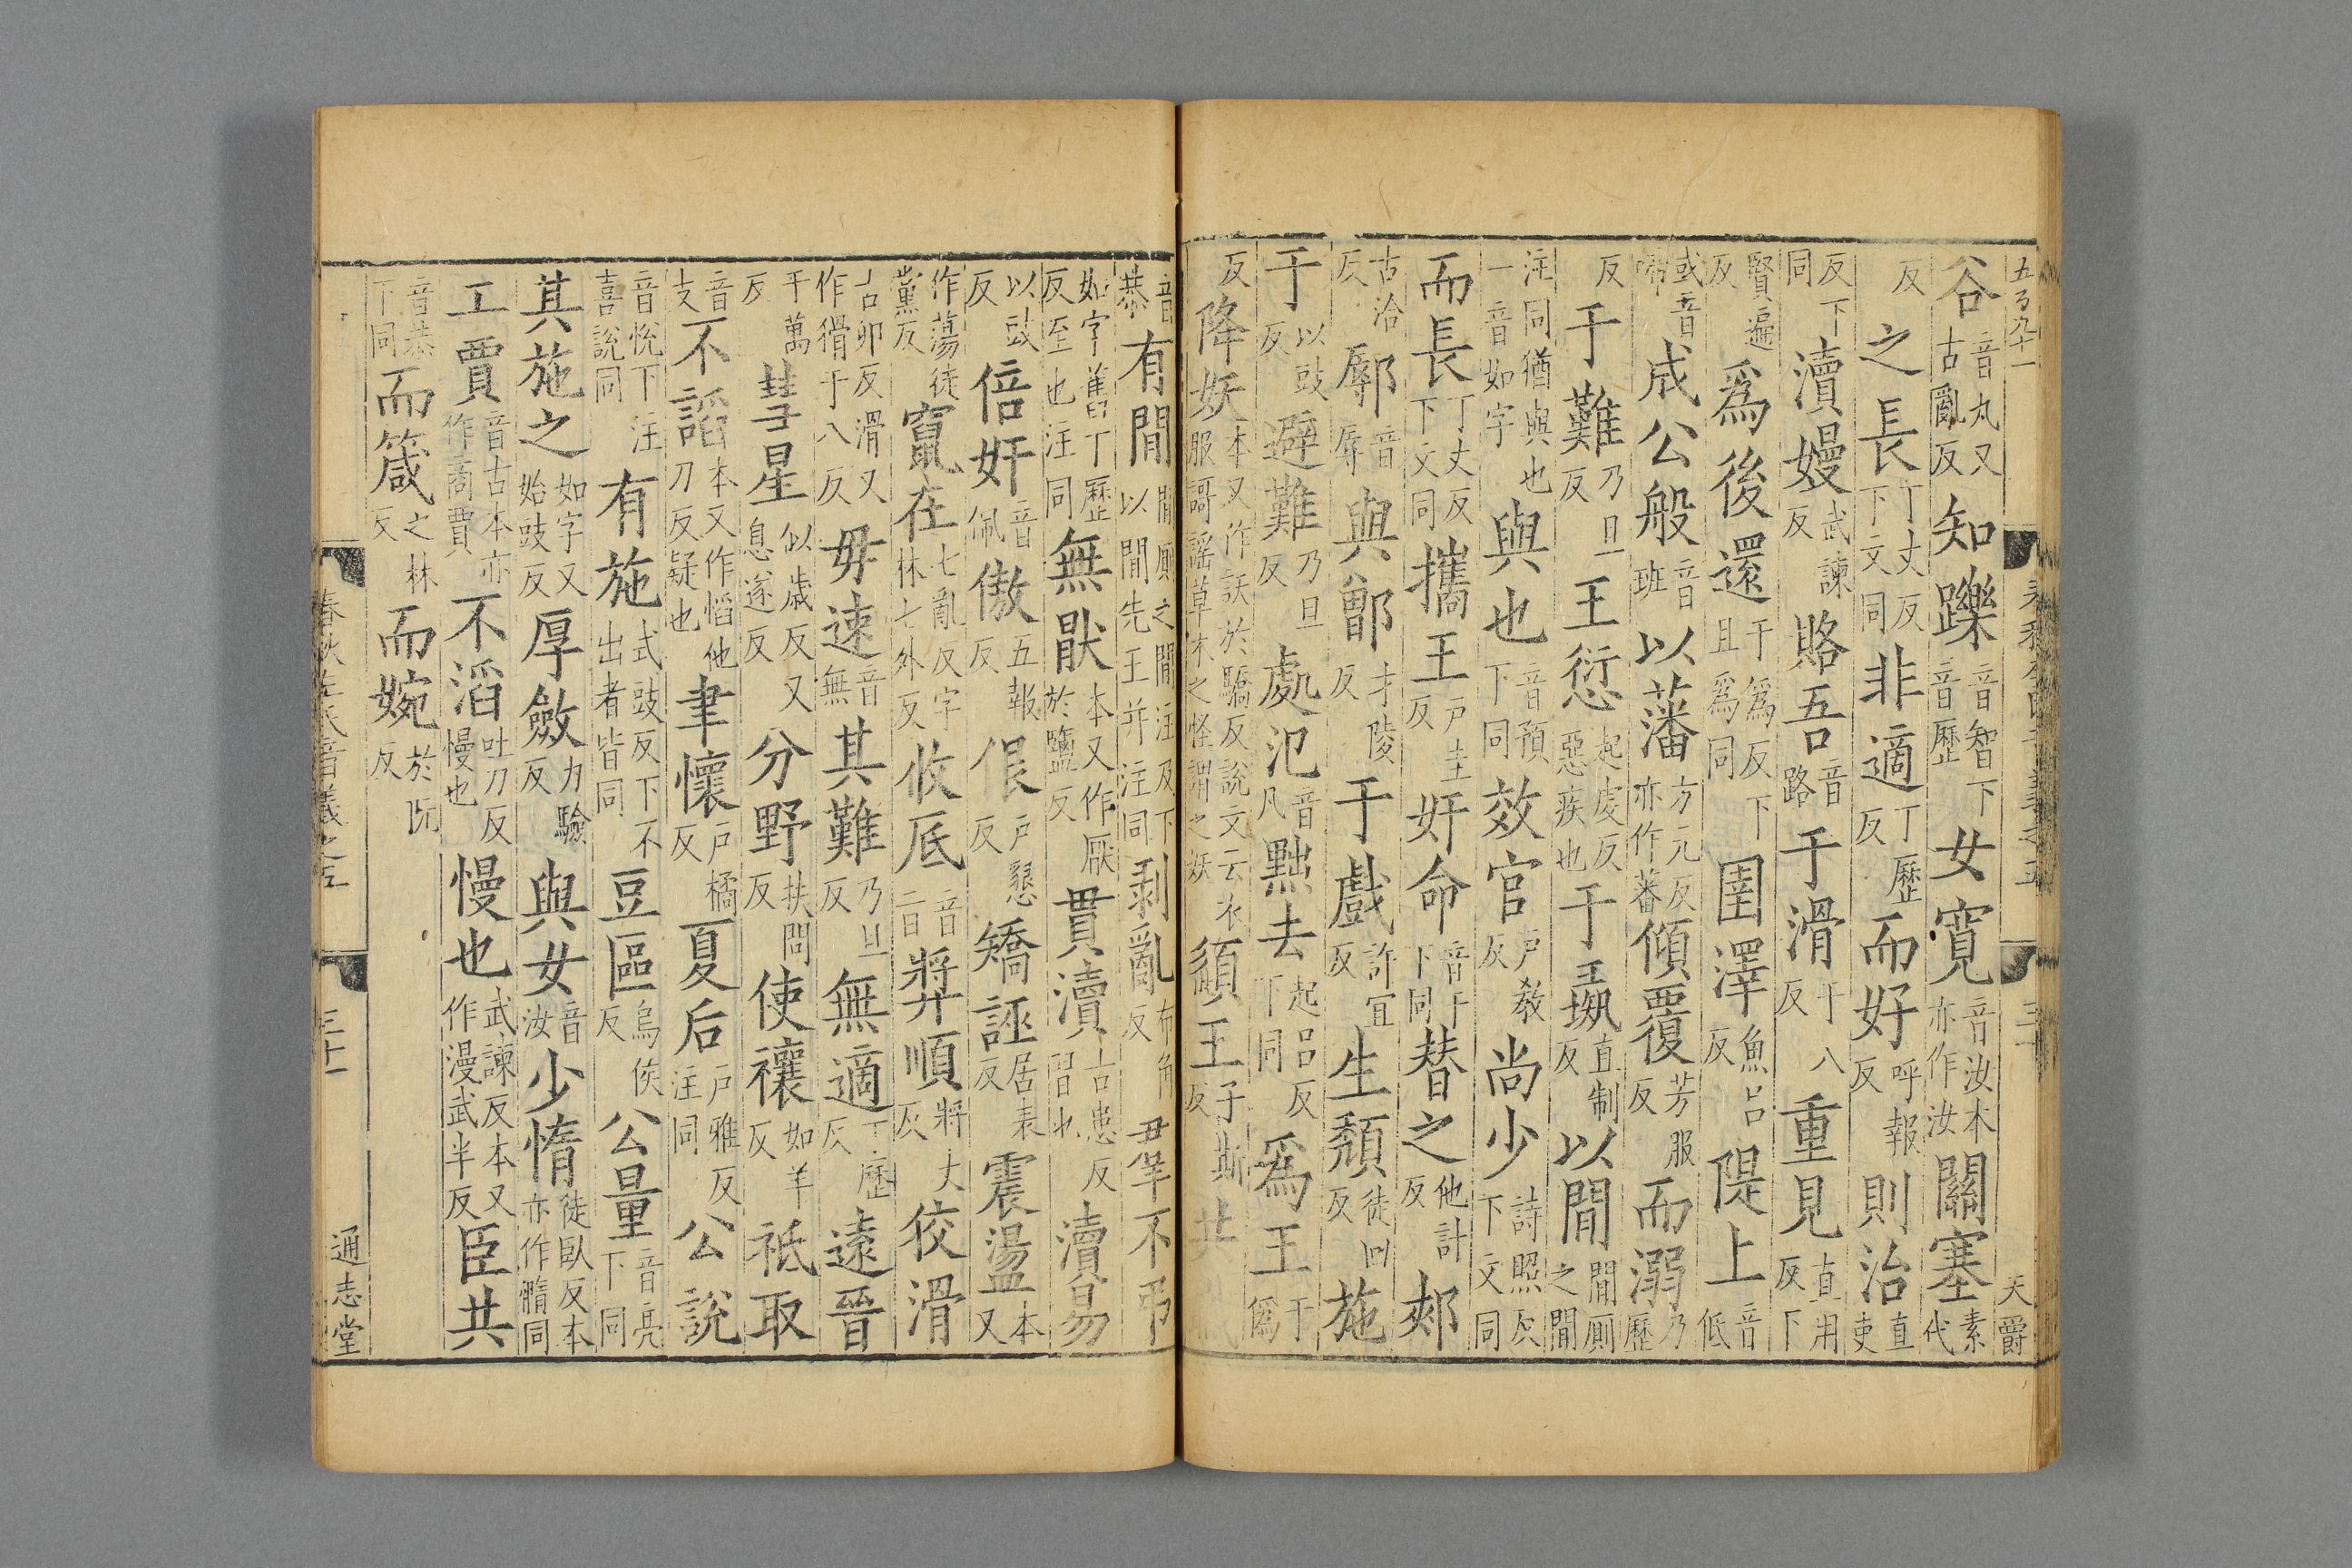 五百九十一
天爵
谷音丸又古亂反知躒音智下音歷女寬音汝本亦作汝關塞素代
反之長丁丈反下文同非適丁歷反而好呼報反則治直吏
反下同瀆嫚武諫反賂吾音路于滑于八反重見直用反下
賢遍反爲後還于爲反下且爲同圉澤魚呂反隄上音低
或音啼成公般音班以藩方元反亦作蕃傾覆芳服反而溺乃歷
反于難乃旦反王愆起虔反惡疾也于彘直制反以閒閒厠之閒
注同猶與也一音如字與也音預下同效官戶敎反尚少詩照反下文同
而長丁丈反下文同攜王戶圭反奸命音干下同替之他計反郟
古洽反鄏音辱與鄫才陵反于戲許宜反生頹徒回反施
于以豉反避難乃旦反處氾音凡黜去起呂反下同爲王于僞
反降妖本又作訞於驕反說文云衣服謌謠草木之怪謂之妖頿王子斯反
音恭有閒閒厠之閒注及下以閒先王并注同剥亂布角反尹辛不弔
如字舊丁歷反至也注同無猒本又作厭於鹽反貫瀆古患反習也瀆易
以豉反倍奸音佩傲五報反佷戶懇反矯誣居表反震盪本又
作蕩徒黨反竄在七亂反字林七外反攸底音旨奬順將丈反佼滑
古卯反滑又作猾于八反毋速音無其難乃旦反無適丁歷反遠晉
于萬反彗星似歲反又息遂反分野扶問反使禳如羊反祗取
音支不謟本又作慆他刀反疑也聿懷戶橘反夏后戶雅反注同公說
音悅下注喜說同有施式豉反下不出者皆同豆區烏侯反公量音亮下同
其施之如字又始豉反厚斂力驗反與女音汝少惰徒臥反本亦作髓同
工賈音古本亦作商賈不滔吐刀反慢也慢也武諫反本又作漫武半反臣共
音恭下同而箴之林反而婉於阮反
春秋左氏音義之五
三十一
通志堂